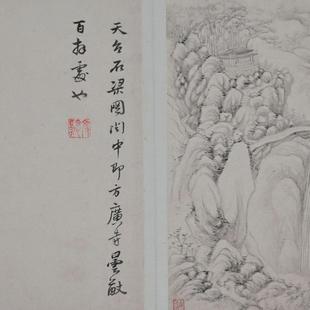 天台石梁圖閣中即方廣寺曇猷
百拜處也